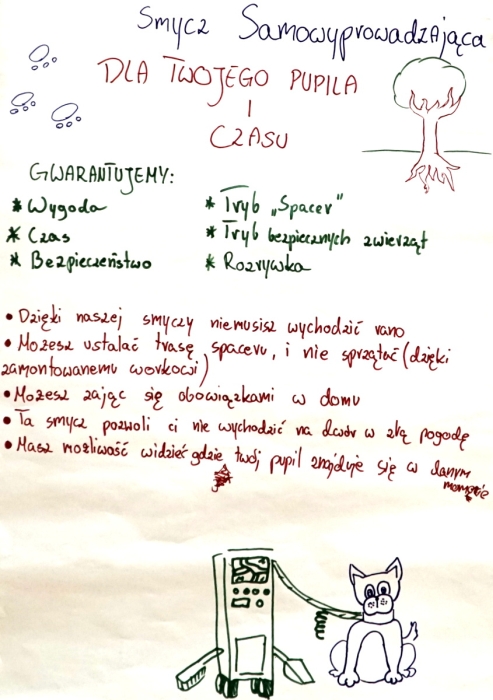 Smycz Samowyprowadzająca
DLA TWOJEGO PUPILA
I
CZASU
GWARANTUJEMY:
* Wygoda
* Czas
* Bezpieczeństwo
* Tryb „Spacer"
* Tryb bezpiecznych zwierząt
* Rozrywka
• Dzięki naszej smyczy niemusisz wychodzić rano
• Możesz ustalać trasę spaceru, i nie sprzątać (dzięki
zamontowanemu workowi)
• Możesz zająć się obowiązkami w domu
• Ta smycz pozwoli ci nie wychodzić na dwór w złą pogodę
• Masz możliwość widzieć gdzie twój pupil znajduje się w danym
momęcie